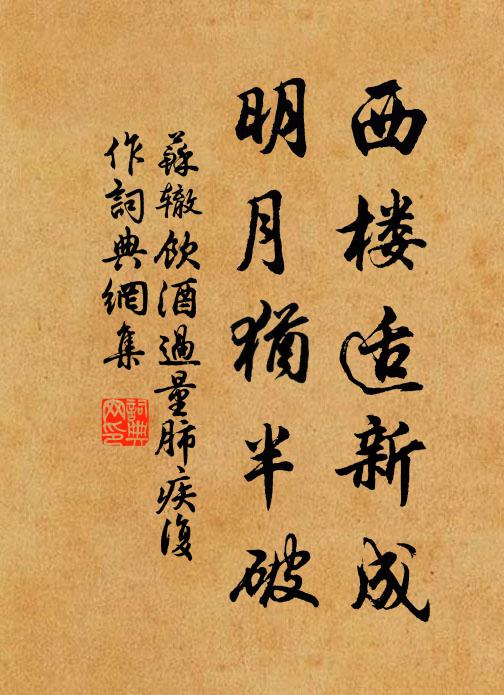 西楼适新成
明月犹半破
蘇辙飲酒過量肺疾復
作詞典網集
詞典网印